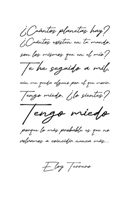 ¿Cuántos planetas hay?
¿Cuántos existen en tu mundo,
son los mismos que en el mío?
Te he seguido a mil,
aún me queda alguno por el que morir.
Tengo miedo. ¿lo sientes?
Tengo miedo
porque lo más probable es que no
volvamos a coincidir nunca más...
Eloy Terrero